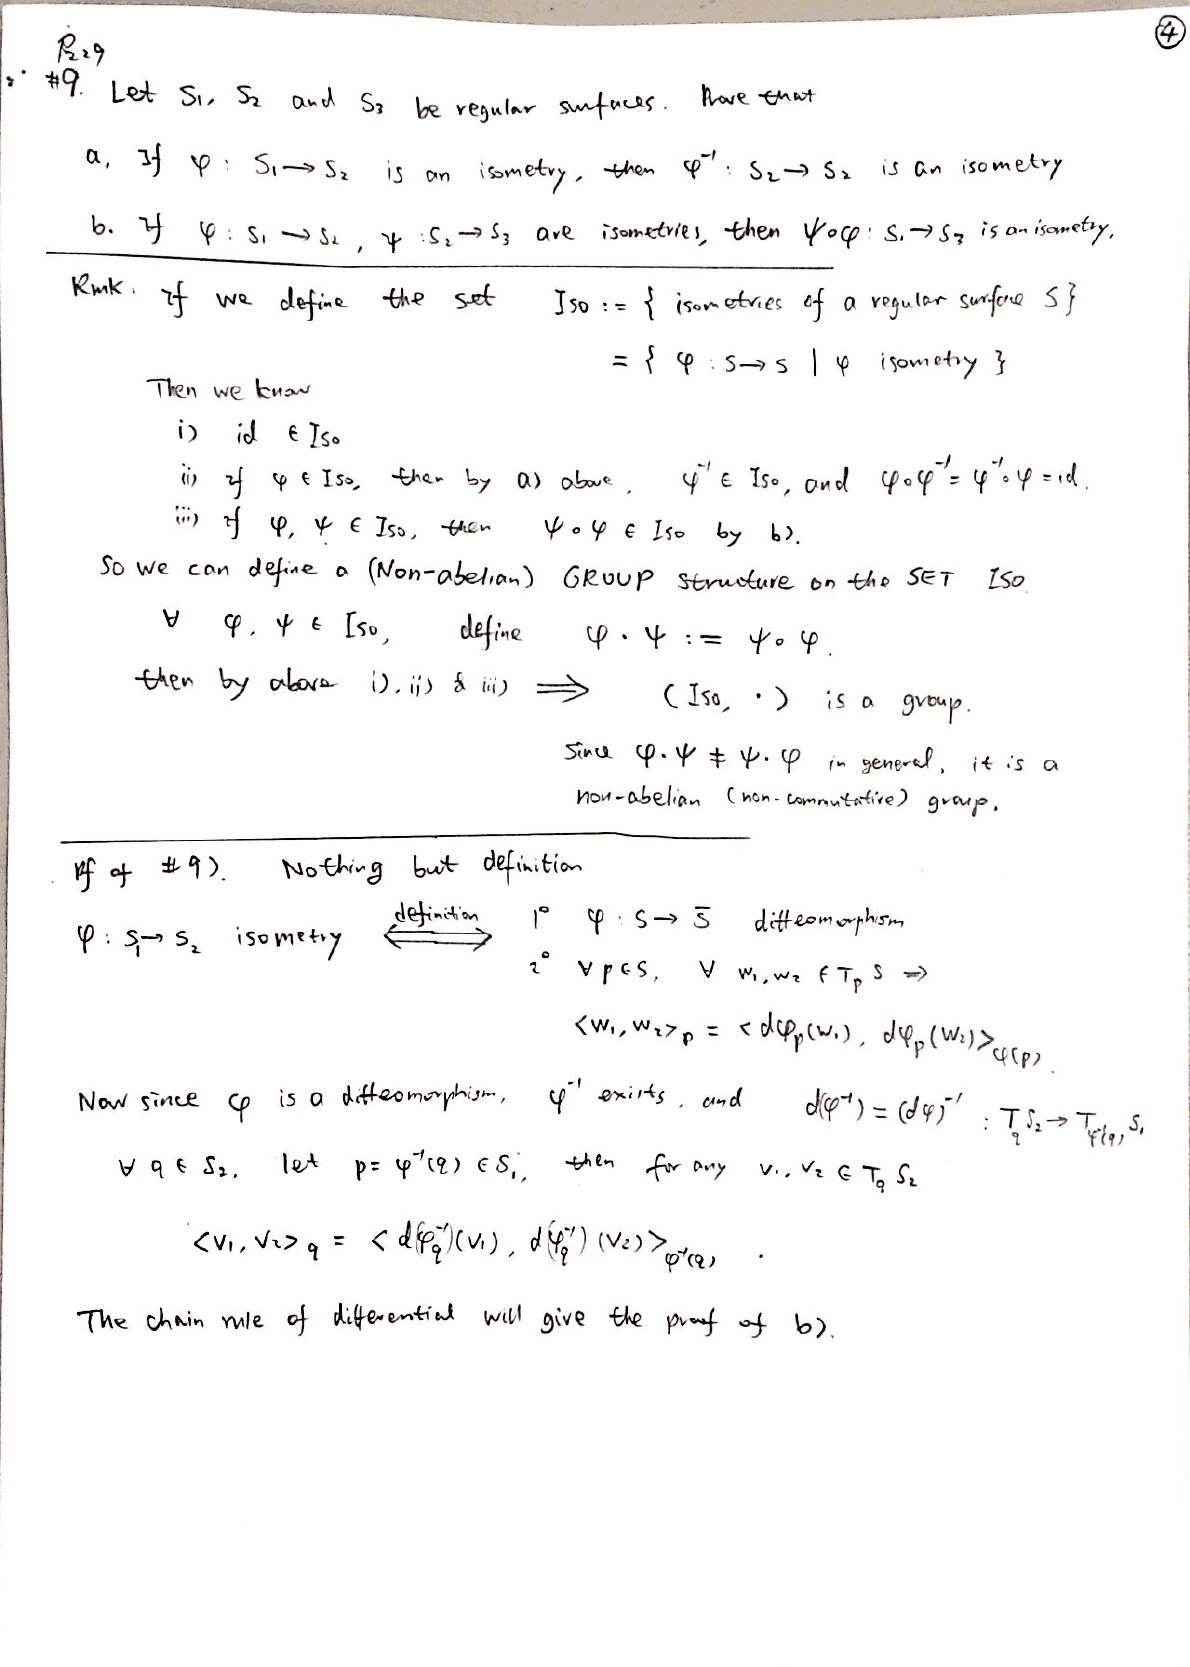 ④
P229
#9. Let S₁, S₂ and S₃ be regular surfaces. Prove that
a, If φ : S₁ → S₂ is an isometry, then φ⁻¹ : S₂ → S₂ is an isometry
b. If φ : S₁ → S₂, ψ : S₂ → S₃ are isometries, then ψ∘φ : S₁ → S₃ is an isometry,
Rmk. If we define the set Iso := { isometries of a regular surface S }
= { φ : S → S | φ isometry }
Then we know
i) id ∈ Iso
ii) if φ ∈ Iso, then by a) above, φ⁻¹ ∈ Iso, and φ∘φ⁻¹ = φ⁻¹∘φ = id.
iii) if φ, ψ ∈ Iso, then ψ∘φ ∈ Iso by b).
So we can define a (Non-abelian) GROUP structure on the SET Iso.
∀ φ, ψ ∈ Iso, define φ·ψ := ψ∘φ.
then by above i), ii) & iii) ⟹ (Iso, ·) is a group.
Since φ·ψ ≠ ψ·φ in general, it is a
non-abelian (non-commutative) group.
Pf of #9). Nothing but definition
φ : S₁ → S₂ isometry ⟺ definition 1° φ : S → S̄ diffeomorphism
2° ∀ p∈S, ∀ w₁, w₂ ∈ TₚS ⇒
<w₁, w₂>ₚ = <dφₚ(w₁), dφₚ(w₂)>_φ(p).
Now since φ is a diffeomorphism, φ⁻¹ exists, and d(φ⁻¹) = (dφ)⁻¹ : T_q S₂ → T_φ⁻¹(q) S₁
∀ q ∈ S₂, let p = φ⁻¹(q) ∈ S₁, then for any v₁, v₂ ∈ T_q S₂
<v₁, v₂>_q = <d(φ_q⁻¹)(v₁), d(φ_q⁻¹)(v₂)>_φ⁻¹(q) .
The chain rule of differential will give the proof of b).